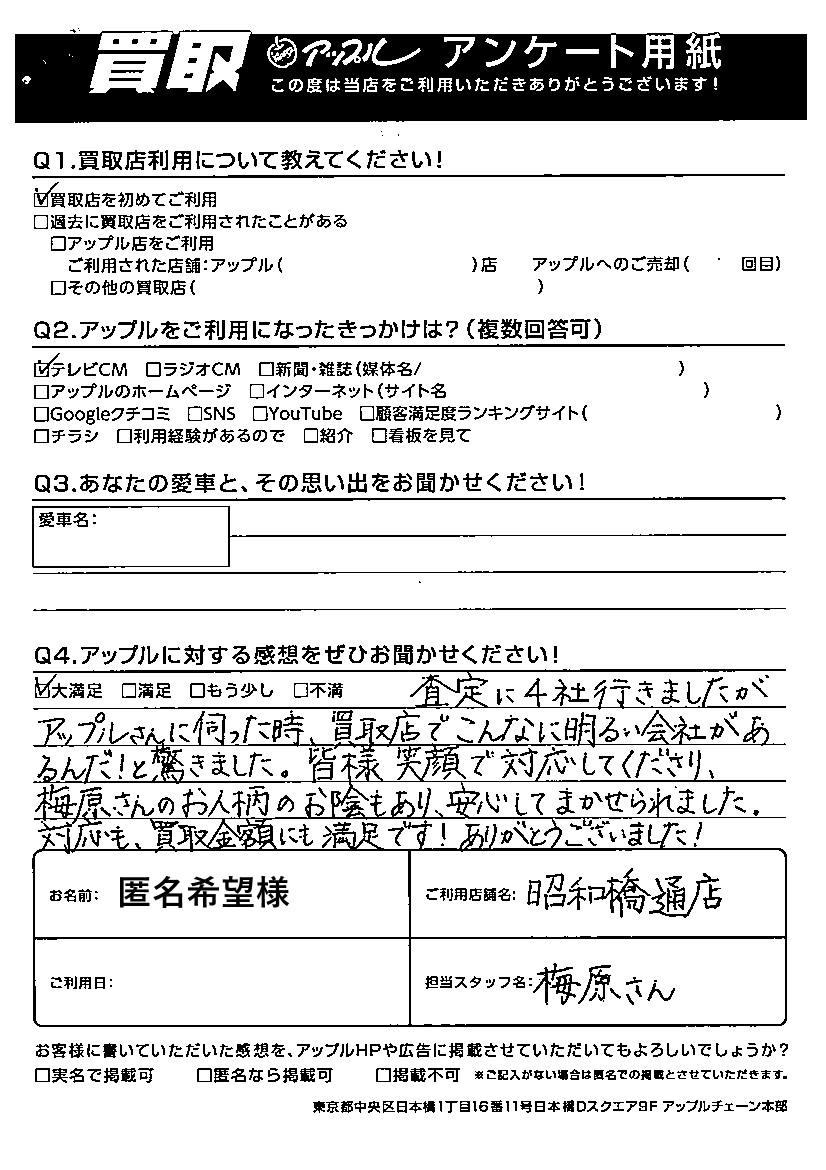 買取 アップル アンケート用紙
この度は当店をご利用いただきありがとうございます!
Q1.買取店利用について教えてください!
☑買取店を初めてご利用
□過去に買取店をご利用されたことがある
□アップル店をご利用
ご利用された店舗:アップル( )店 アップルへのご売却( 回目)
□その他の買取店( )
Q2.アップルをご利用になったきっかけは?(複数回答可)
☑テレビCM □ラジオCM □新聞・雑誌(媒体名/ )
□アップルのホームページ □インターネット(サイト名 )
□Googleクチコミ □SNS □YouTube □顧客満足度ランキングサイト( )
□チラシ □利用経験があるので □紹介 □看板を見て
Q3.あなたの愛車と、その思い出をお聞かせください!
愛車名:
Q4.アップルに対する感想をぜひお聞かせください!
☑大満足 □満足 □もう少し □不満 査定に4社行きましたが
アップルさんに伺った時、買取店でこんなに明るい会社があ
るんだ!と驚きました。皆様笑顔で対応してくださり、
梅原さんのお人柄のお陰もあり、安心してまかせられました。
対応も、買取金額にも満足です!ありがとうございました!
お名前: 匿名希望様 ご利用店舗名: 昭和橋通店
ご利用日: 担当スタッフ名: 梅原さん
お客様に書いていただいた感想を、アップルHPや広告に掲載させていただいてもよろしいでしょうか?
□実名で掲載可 □匿名なら掲載可 □掲載不可 ※ご記入がない場合は匿名での掲載とさせていただきます。
東京都中央区日本橋1丁目16番11号日本橋Dスクエア9F アップルチェーン本部